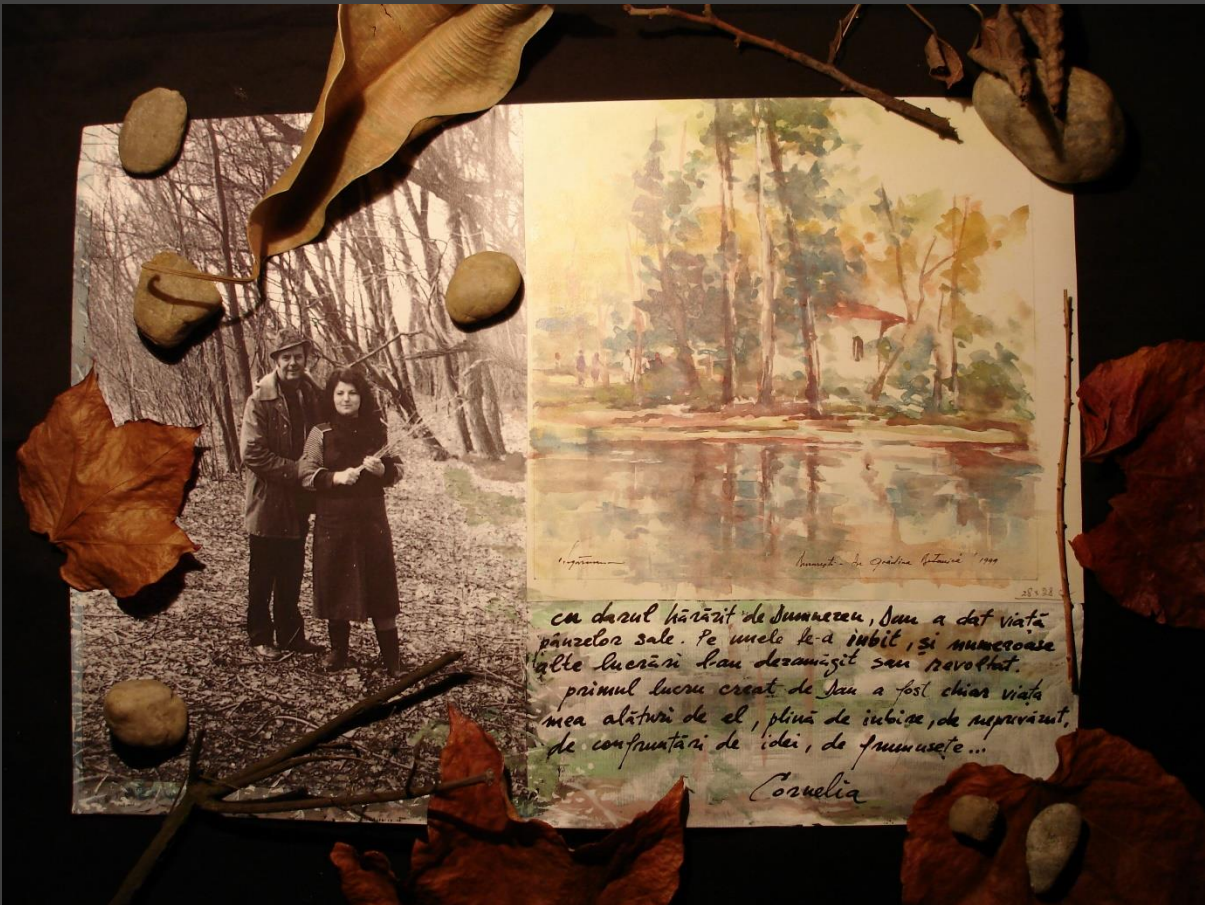 București - În Grădina Botanică 1999
28 x 28
cu darul hărăzit de Dumnezeu, Dan a dat viață
pânzelor sale. Pe unele le-a iubit, și numeroase
alte lucrări l-au dezamăgit sau revoltat.
primul lucru creat de Dan a fost chiar viața
mea alături de el, plină de iubire, de neprevăzut,
de confruntări de idei, de frumusețe...
Cornelia